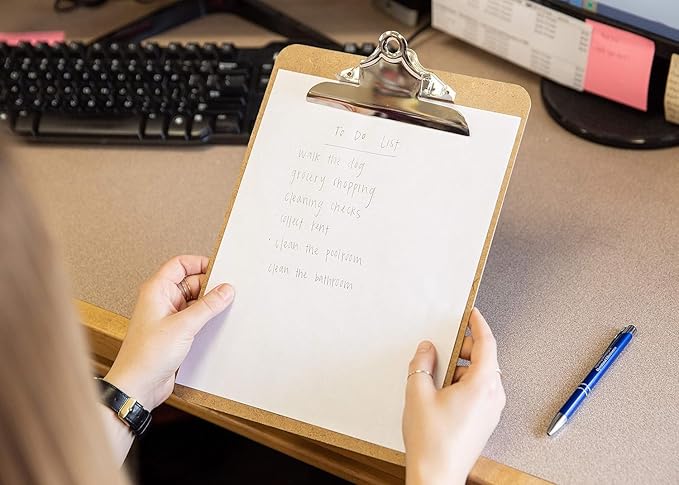 To Do List
walk the dog
grocery shopping
cleaning checks
collect rent
· clean the poolroom
clean the bathroom